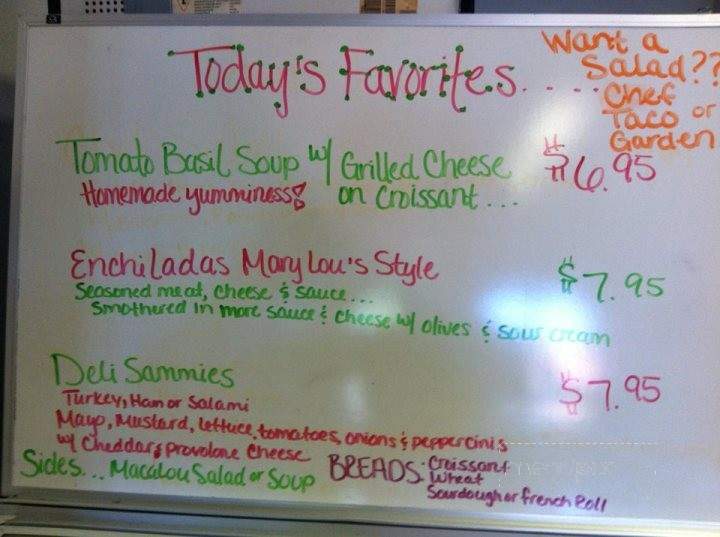 Today's Favorites.....
Want a
Salad??
Chef
Taco or
Garden
Tomato Basil Soup w/ Grilled Cheese $6.95
Homemade yumminess! on Croissant...
Enchiladas Mary Lou's Style $7.95
Seasoned meat, cheese & sauce...
Smothered in more sauce & cheese w/ olives & sour cream
Deli Sammies $7.95
Turkey, Ham or Salami
Mayo, Mustard, lettuce, tomatoes, onions & pepperoinis
w/ Cheddar & provolone Cheese
Sides... Macalou Salad or Soup
BREADS: Croissant
Wheat
Sourdough or french Roll